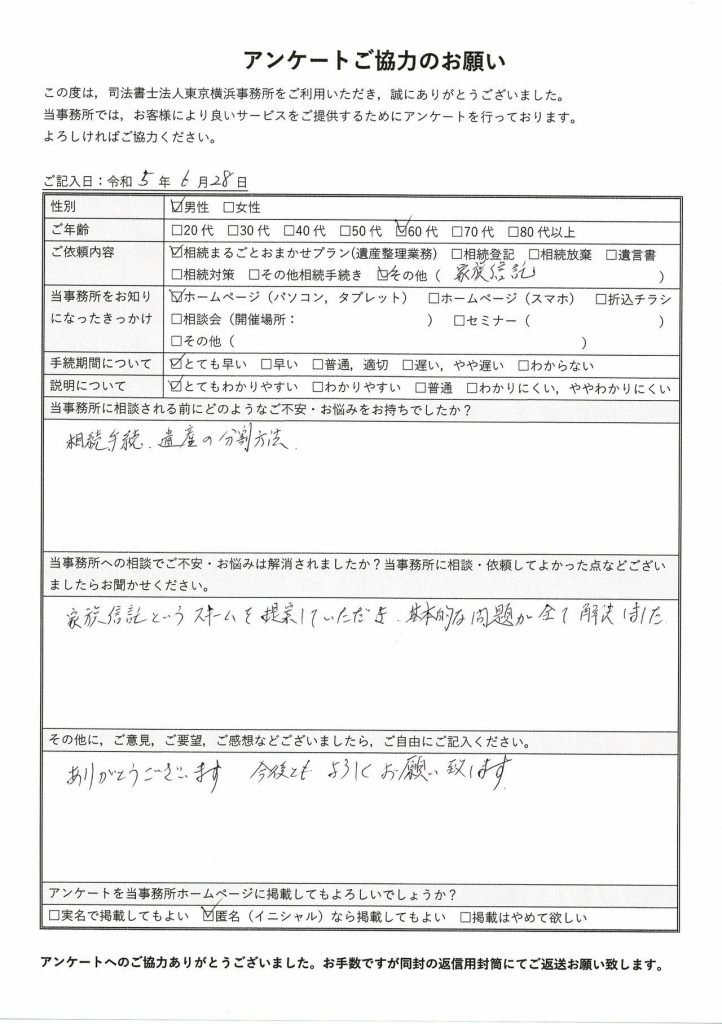 アンケートご協力のお願い
この度は，司法書士法人東京横浜事務所をご利用いただき，誠にありがとうございました。
当事務所では，お客様により良いサービスをご提供するためにアンケートを行っております。
よろしければご協力ください。
ご記入日：令和 5 年 6 月 28 日
性別 ☑男性 □女性
ご年齢 □20代 □30代 □40代 □50代 ☑60代 □70代 □80代以上
ご依頼内容 ☑相続まるごとおまかせプラン(遺産整理業務) □相続登記 □相続放棄 □遺言書
□相続対策 □その他相続手続き ☑その他（ 家族信託 ）
当事務所をお知り ☑ホームページ（パソコン，タブレット） □ホームページ（スマホ） □折込チラシ
になったきっかけ □相談会（開催場所： ） □セミナー（ ）
□その他（ ）
手続期間について ☑とても早い □早い □普通，適切 □遅い，やや遅い □わからない
説明について ☑とてもわかりやすい □わかりやすい □普通 □わかりにくい，ややわかりにくい
当事務所に相談される前にどのようなご不安・お悩みをお持ちでしたか？
相続手続、遺産の分割方法、
当事務所への相談でご不安・お悩みは解消されましたか？当事務所に相談・依頼してよかった点などござい
ましたらお聞かせください。
家族信託というスキームを提案していただき、基本的な問題が全て解決しました
その他に，ご意見，ご要望，ご感想などございましたら，ご自由にご記入ください。
ありがとうございます 今後とも よろしくお願い致します
アンケートを当事務所ホームページに掲載してもよろしいでしょうか？
□実名で掲載してもよい ☑匿名（イニシャル）なら掲載してもよい □掲載はやめて欲しい
アンケートへのご協力ありがとうございました。お手数ですが同封の返信用封筒にてご返送お願い致します。